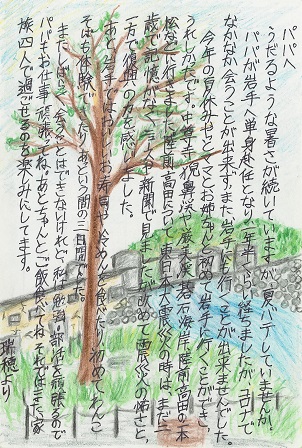 パパへ
うだるような暑さが続いていますが、夏バテしていませんか。
パパが岩手へ単身赴任となり一年半くらい経ちましたが、コロナで
なかなか会うことが出来ず、また岩手に行くことが出来ませんでした。
今年の夏休みやっとママとお姉ちゃんと初めて岩手に行くことができ、
うれしかったです。中尊寺、猊鼻渓や厳美渓、碁石海岸、陸前高田の一本
松などに行きました。陸前高田に行って東日本大震災の時は、まだ一
歳で記憶がなく、ニュースや新聞で見ましたが改めて震災の怖さと、
一方で復興の力を感じました。
あと、岩手ではおいしいお寿司や冷めんを食べたり、初めてわんこ
そばも体験でき、あっという間の三日間でした。
またしばらく会うことはできないけれど、私は勉強・部活を頑張るので
パパもお仕事頑張ってね。あとちゃんとご飯食べてね。それではまた家
族四人で過ごせるのを楽しみにしてます。
瑞穂より